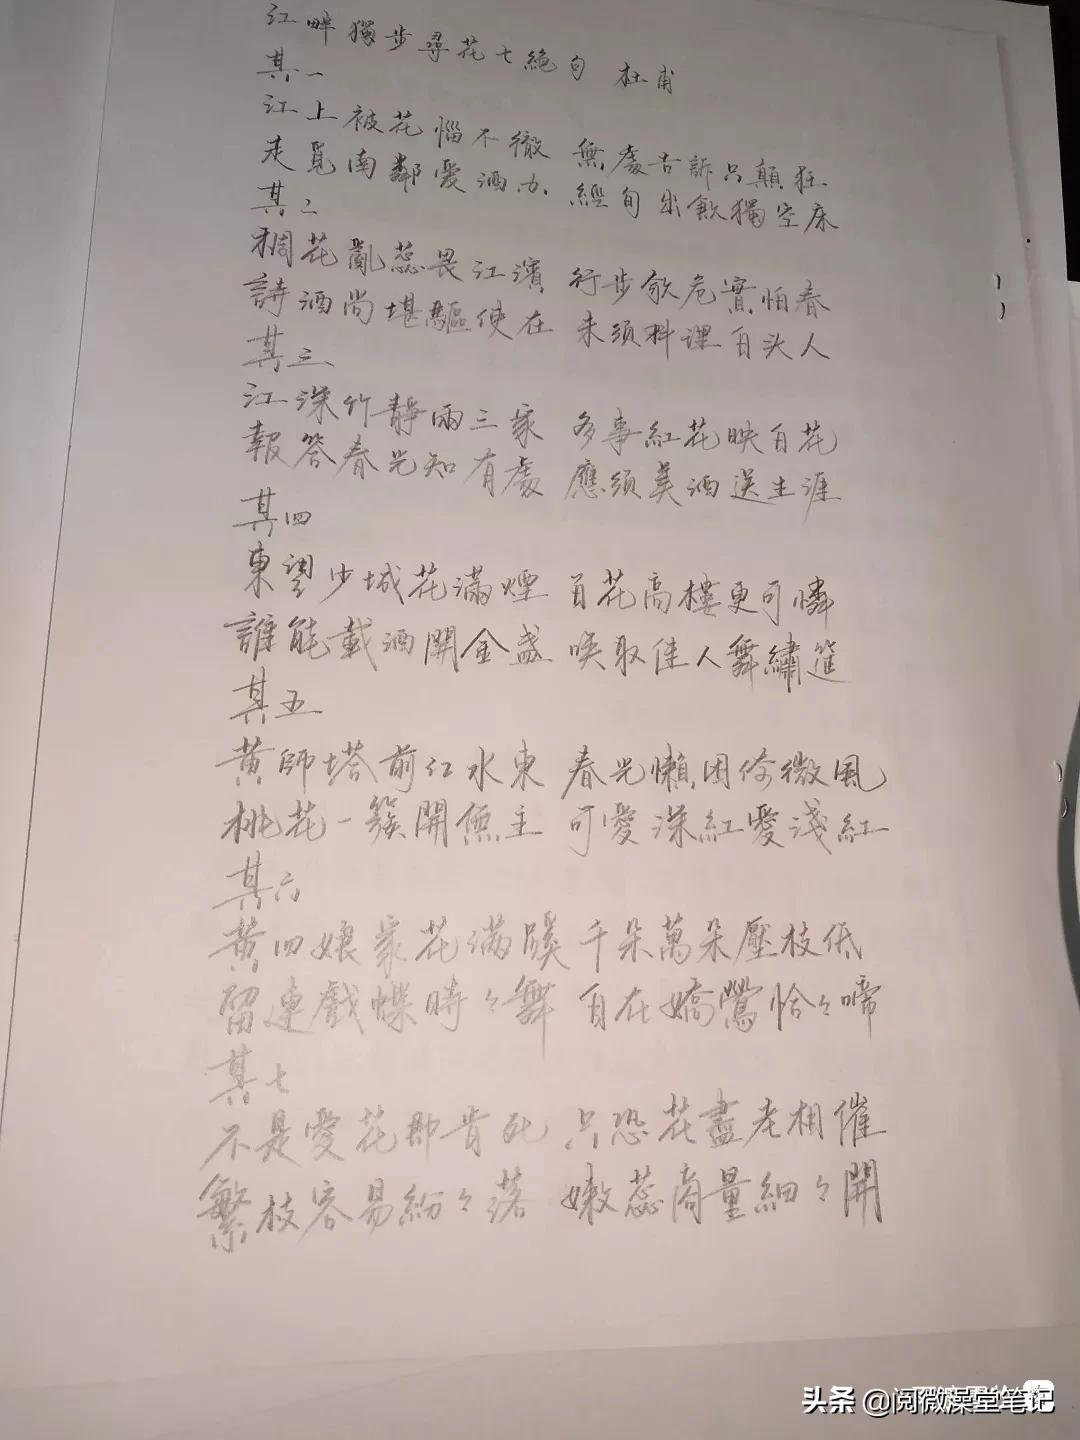 江畔獨步尋花七絕句 杜甫
其一
江上被花惱不徹 無處告訴只顛狂
走覓南鄰愛酒力 經旬出飲獨空床
其二
稠花亂蕊畏江濱 行步欹危實怕春
詩酒尚堪驅使在 未須料理白头人
其三
江深竹静兩三家 多事紅花映白花
報答春光知有處 應須美酒送生涯
其四
東望少城花滿煙 百花高樓更可憐
誰能載酒開金盞 喚取佳人舞繡筵
其五
黄師塔前江水東 春光懶困倚微風
桃花一簇開無主 可愛深紅愛淺紅
其六
黄四娘家花满蹊 千朵萬朵壓枝低
留連戲蝶時々舞 自在嬌鶯恰々啼
其七
不是愛花即肯死 只恐花盡老相催
繁枝容易紛々落 嫩蕊商量細々開
头条 @阅微澡堂笔记